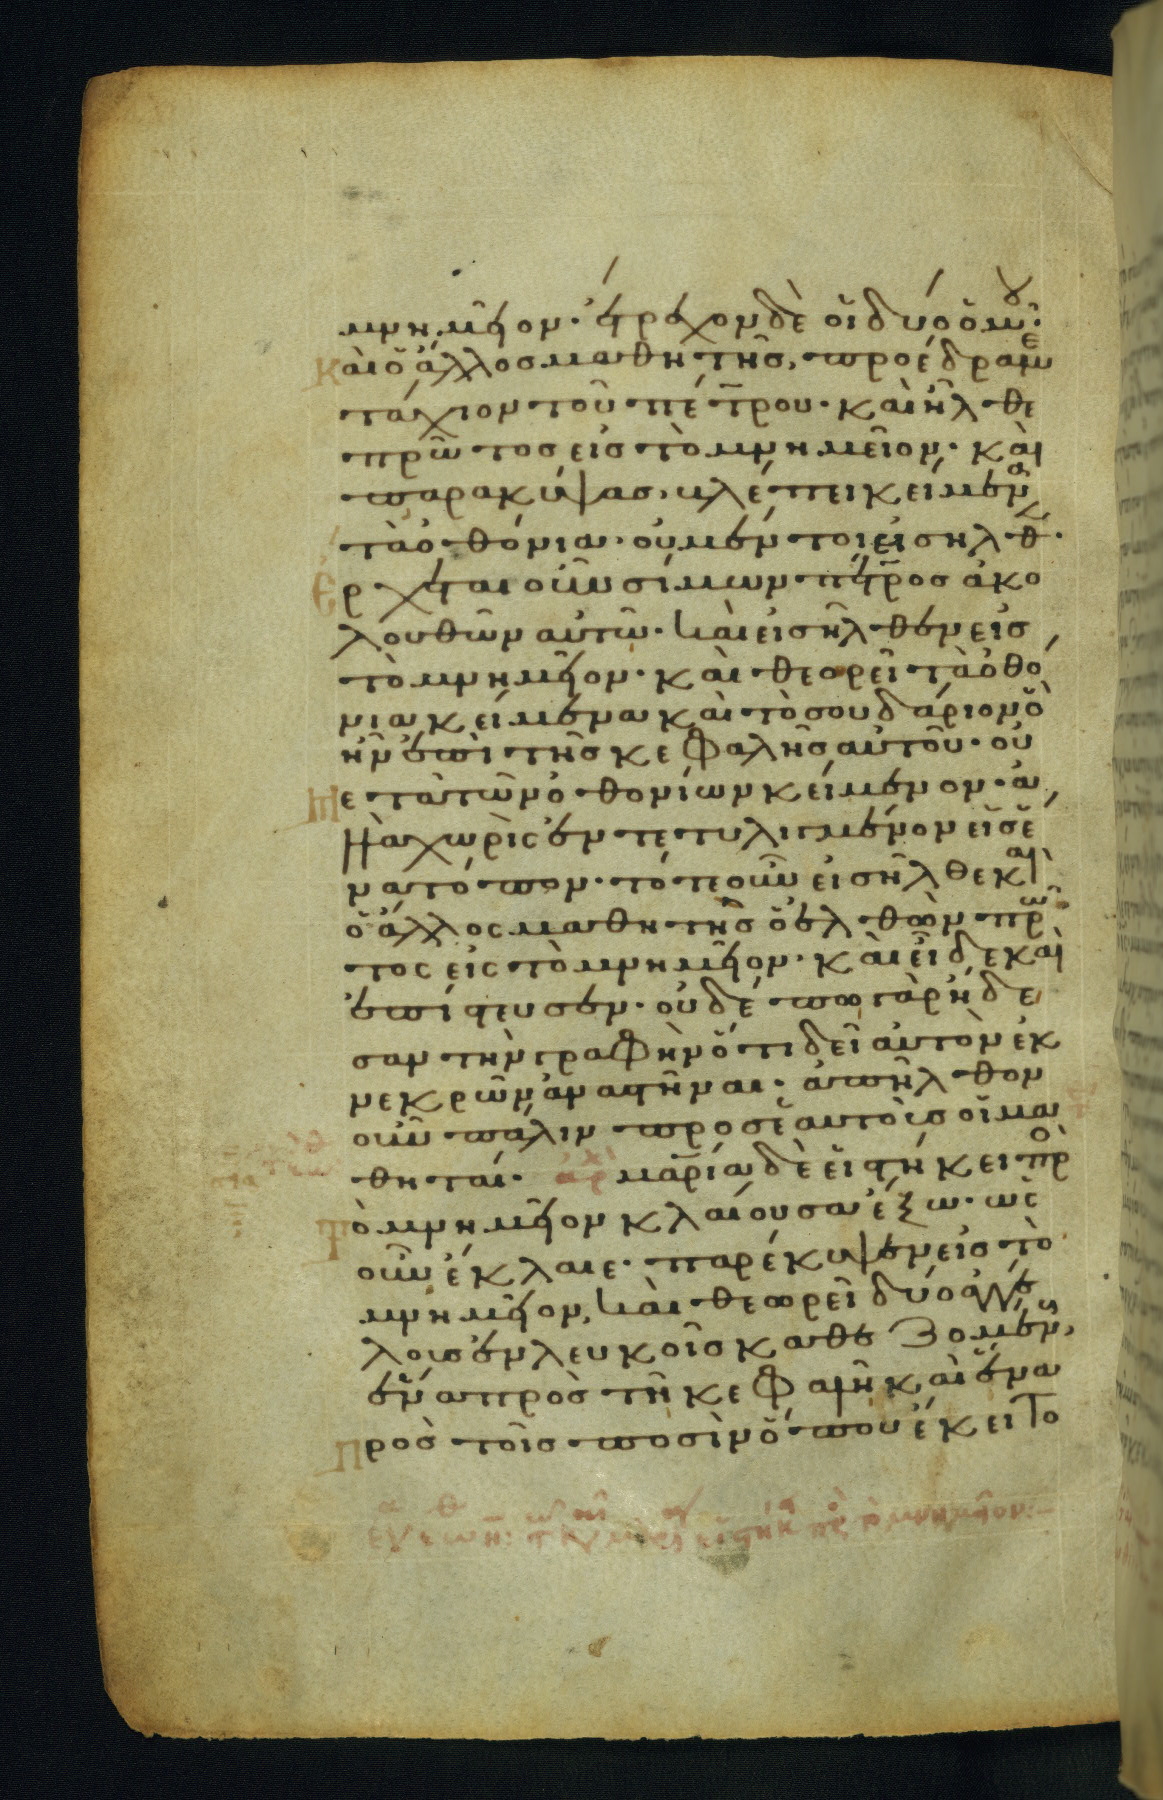 μνημεῖον· ἔτρεχον δὲ οἱ δύο ὁμοῦ·
καὶ ὁ ἄλλος μαθητῆς, προέδραμε
τάχιον τοῦ πέτρου· καὶ ἦλθε
πρῶτος εἰς τὸ μνημεῖον· καὶ
παρακύψας, βλέπει κείμενα
τὰ ὀθόνια· οὐ μέντοι εἰσῆλθεν·
Ἔρχεται οὖν σίμων πέτρος ἀκο
λουθῶν αὐτῶ· καὶ εἰσῆλθεν εἰς
τὸ μνημεῖον· καὶ θεορεῖ τὰ ὀθό
νια κείμενα καὶ τὸ σουδάριον ὃ
ἦν ἐπὶ τῆς κεφαλῆς αὐτοῦ· οὐ
μετὰ τῶν ὀθονίων κείμενον· ἀλ
λὰ χωρὶς ἐντετυλιγμένον εἰς ἕ
να τόπον· τότε οὖν εἰσῆλθε καὶ
ὁ ἄλλος μαθητῆς ὁ ἐλθὼν πρῶ
τος εἰς τὸ μνημεῖον· καὶ εἶδε καὶ
ἐπίστευσεν· οὐδέπω γὰρ ἤδε
σαν τὴν γραφὴν ὅτι δεῖ αὐτὸν ἐκ
νεκρῶν ἀναστῆναι· ἀπῆλθον
οὖν πάλιν πρὸς ἑαυτοὺς οἱ μα
θηταί· ἀρχ μαρία δὲ εἱστήκει πρὸς
τὸ μνημεῖον κλαίουσα ἔξω· ὡς
οὖν ἔκλαιε· παρέκυψεν εἰς τὸ
μνημεῖον, καὶ θεωρεῖ δύο ἀγγέ
λους ἐν λευκοῖς καθεζομένους,
ἕνα πρὸς τῆ κεφαλῆ καὶ ἕνα
πρὸς τοῖς ποσὶν ὅπου ἔκειτο
εἱστήκει πρὸς τὸ μνημεῖον: